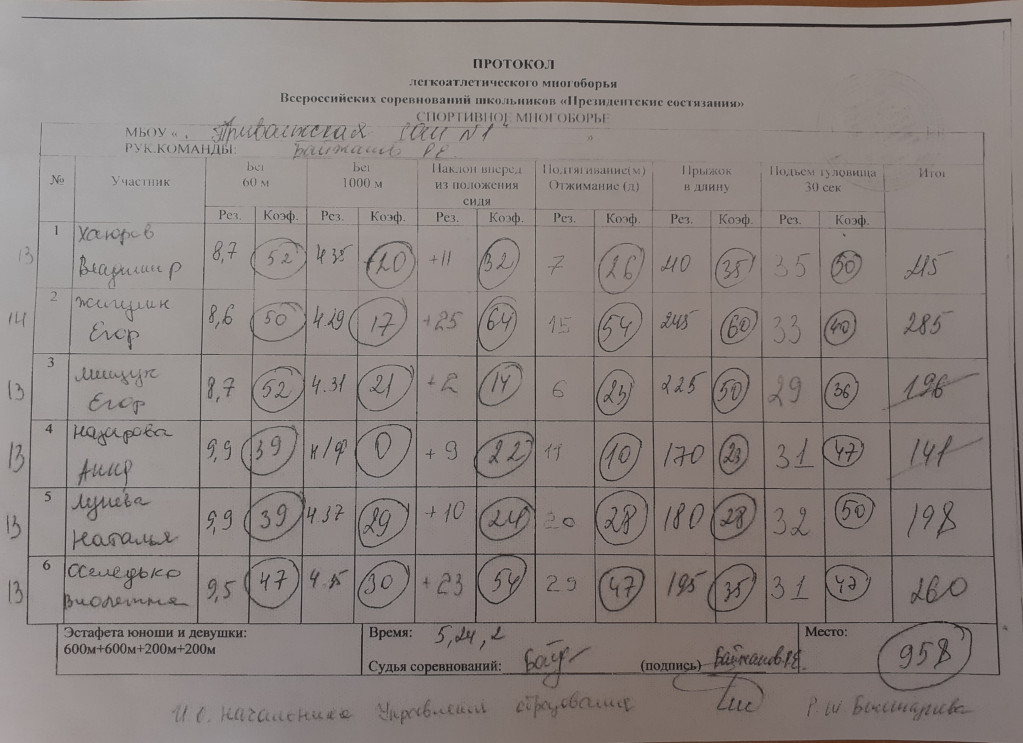 ПРОТОКОЛ
легкоатлетического многоборья
Всероссийских соревнований школьников «Президентские состязания»
СПОРТИВНОЕ МНОГОБОРЬЕ
МБОУ « Приволжская СОШ №1" »
РУК.КОМАНДЫ: Байжанов Р.Е.
№ Участник Бег 60 м Бег 1000 м Наклон вперед из положения сидя Подтягивание(м) Отжимание (д) Прыжок в длину Подъем туловища 30 сек Итог
Рез. Коэф. Рез. Коэф. Рез. Коэф. Рез. Коэф. Рез. Коэф. Рез. Коэф.
13 1 Владимир 8,7 52 4.35 20 +11 32 7 26 35 35 50 215
14 2 Жигулин Егор 8,6 50 4.29 17 +25 64 15 54 245 60 33 40 285
13 3 Мищук Егор 8,7 52 4.31 21 +2 14 6 23 225 50 29 36 196
13 4 Назарова Анна 9,9 39 н/ф 0 +9 22 11 10 170 23 31 47 141
13 5 Лунева Наталья 9,9 39 4.37 29 +10 24 20 28 180 28 32 50 198
13 6 Оселедько Виолетта 9,5 47 4.35 30 +23 54 29 47 195 35 31 47 260
Эстафета юноши и девушки:
600м+600м+200м+200м
Время: 5,24,2
Судья соревнований: (подпись) Байжанов Р.Е.
Место:
958
И.о. начальника Управления образования Р.Ш.